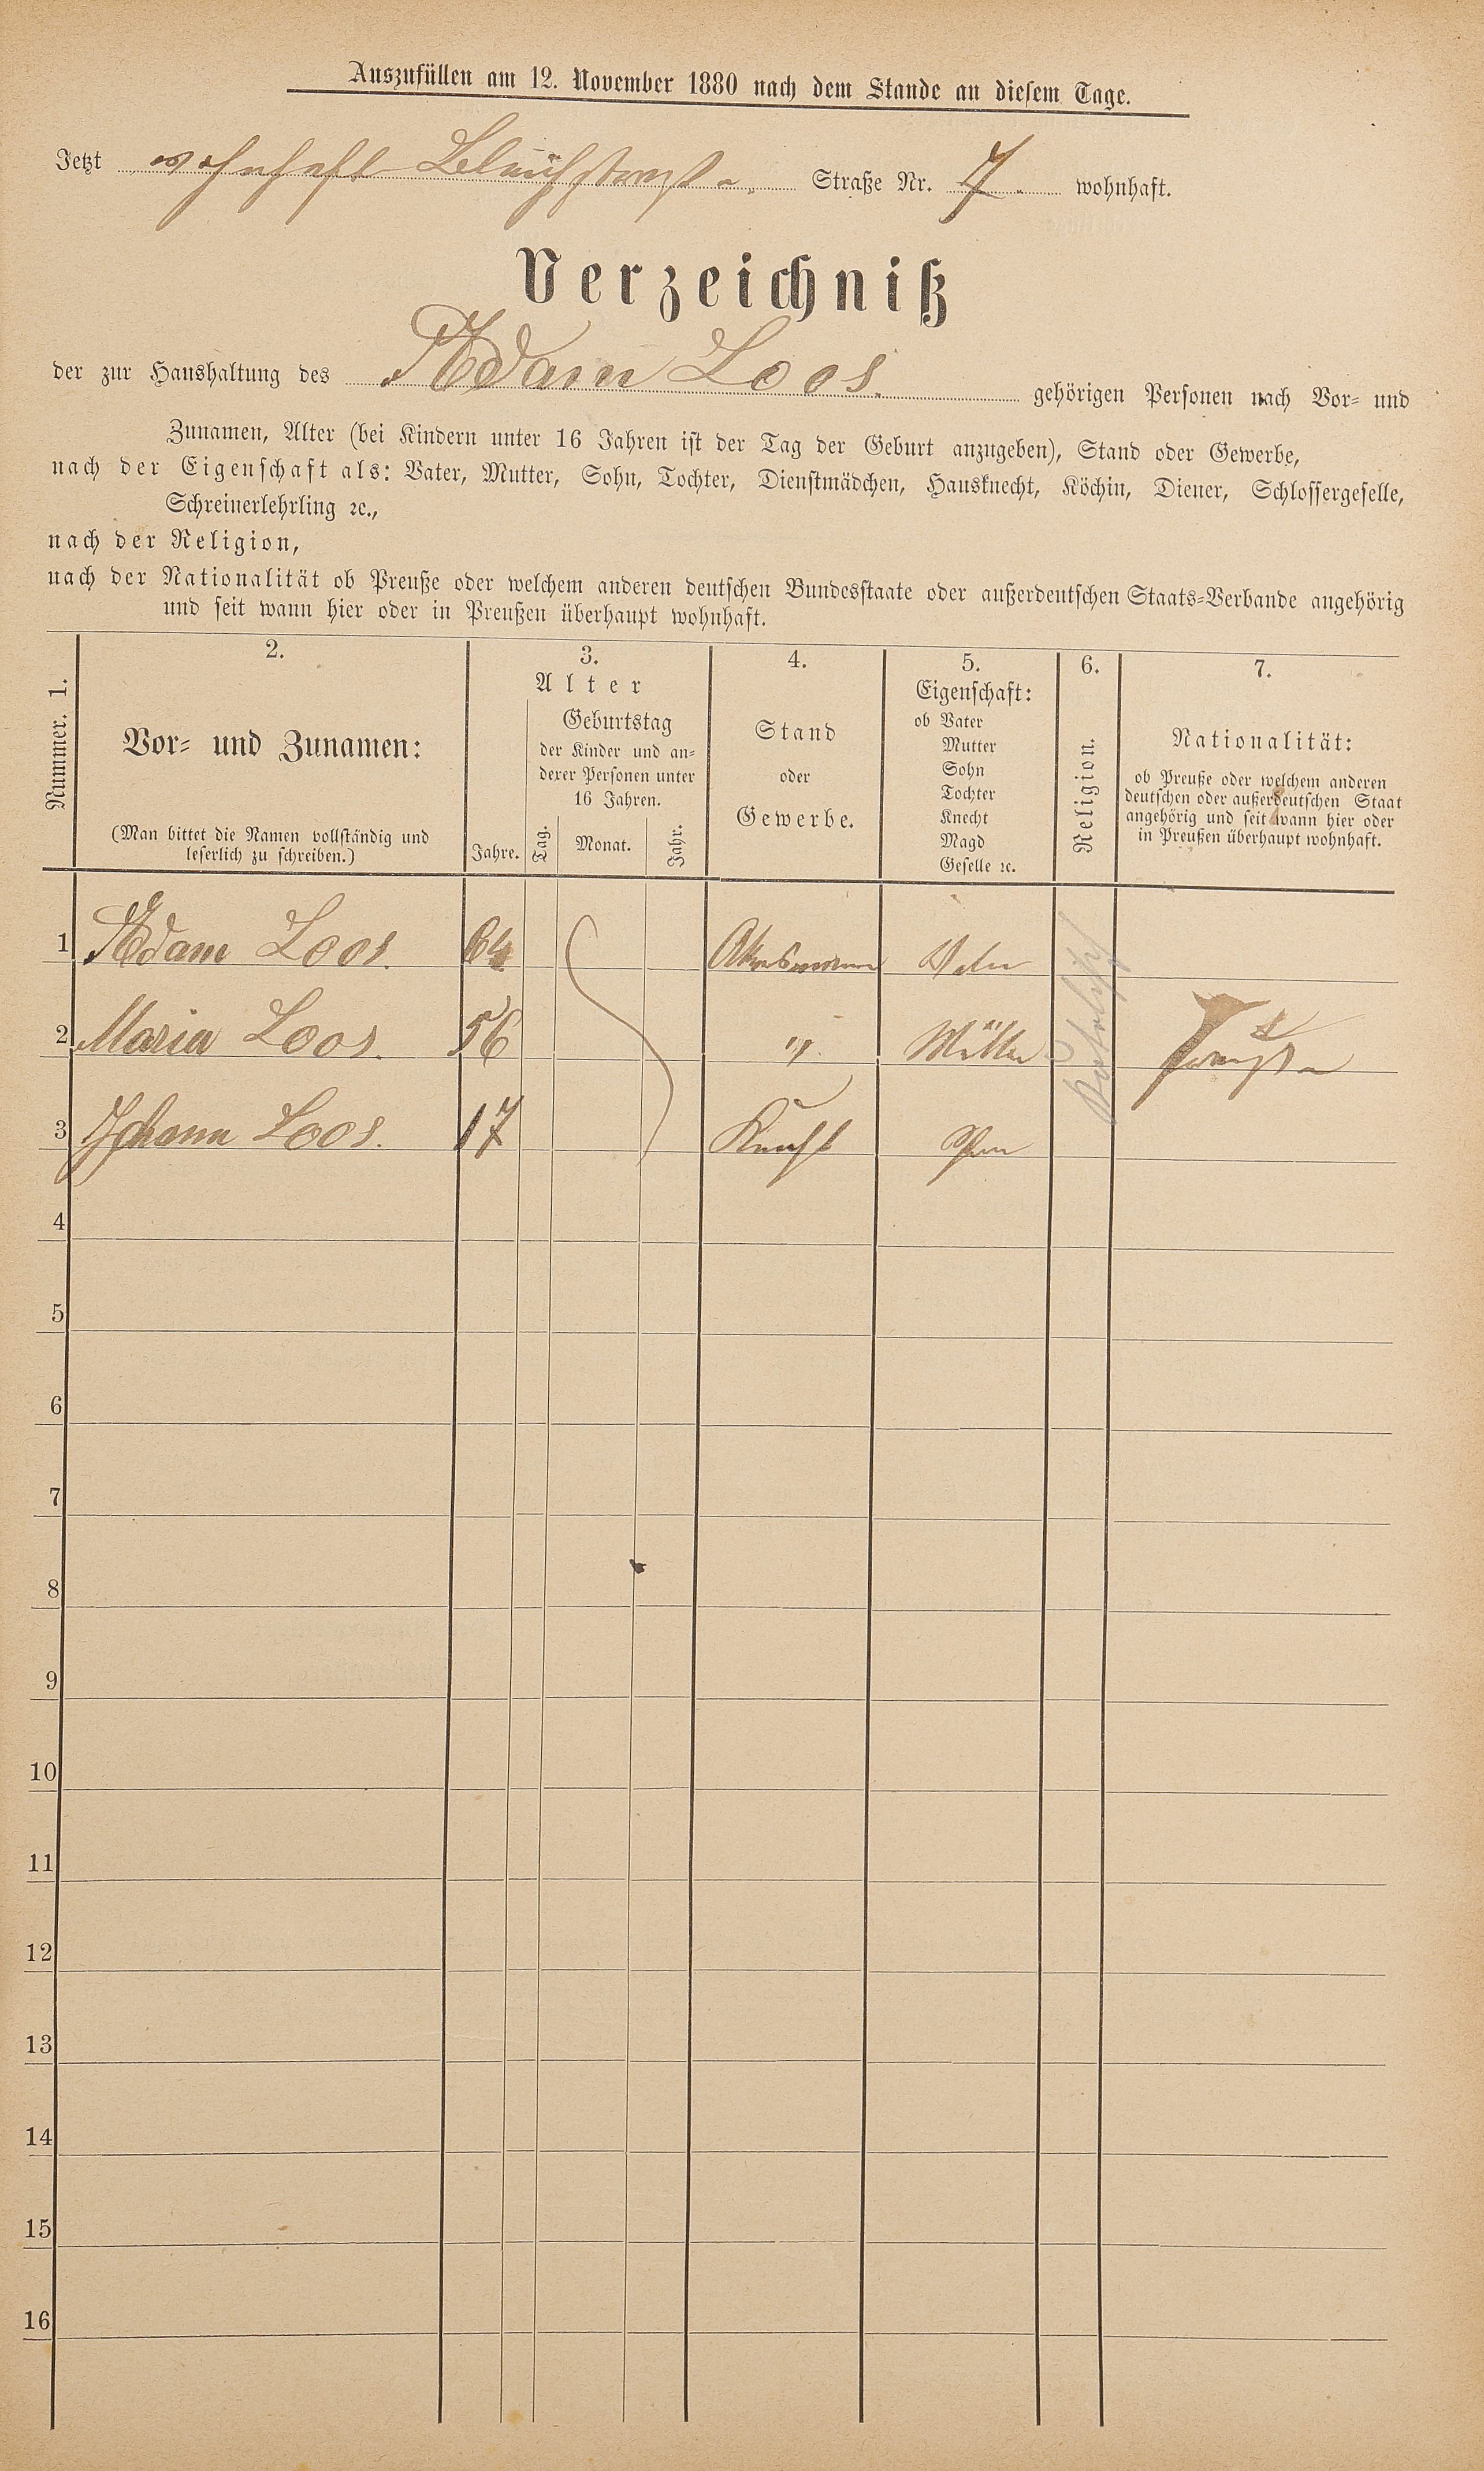 Auszufüllen am 12. November 1880 nach dem Stande an diesem Tage.
Jetzt wohnhaft Bleichstraße Straße Nr. 7. wohnhaft.
Verzeichniß
der zur Haushaltung des Adam Loos. gehörigen Personen nach Vor- und
Zunamen, Alter (bei Kindern unter 16 Jahren ist der Tag der Geburt anzugeben), Stand oder Gewerbe,
nach der Eigenschaft als: Vater, Mutter, Sohn, Tochter, Dienstmädchen, Hausknecht, Köchin, Diener, Schlossergeselle,
Schreinerlehrling ꝛc.,
nach der Religion,
nach der Nationalität ob Preuße oder welchem anderen deutschen Bundesstaate oder außerdeutschen Staats-Verbande angehörig
und seit wann hier oder in Preußen überhaupt wohnhaft.
Nummer. 1.
2.
Vor- und Zunamen:
(Man bittet die Namen vollständig und
leserlich zu schreiben.)
3.
Alter
Jahre.
Geburtstag
der Kinder und an-
derer Personen unter
16 Jahren.
Tag. Monat. Jahr.
4.
Stand
oder
Gewerbe.
5.
Eigenschaft:
ob Vater
Mutter
Sohn
Tochter
Knecht
Magd
Geselle ꝛc.
6.
Religion.
7.
Nationalität:
ob Preuße oder welchem anderen
deutschen oder außerdeutschen Staat
angehörig und seit wann hier oder
in Preußen überhaupt wohnhaft.
1 Adam Loos. 64 Vater
2 Maria Loos. 56 " Mutter Preuße
3 Johann Loos. 17 Knecht Sohn
Katholisch
4
5
6
7
8
9
10
11
12
13
14
15
16